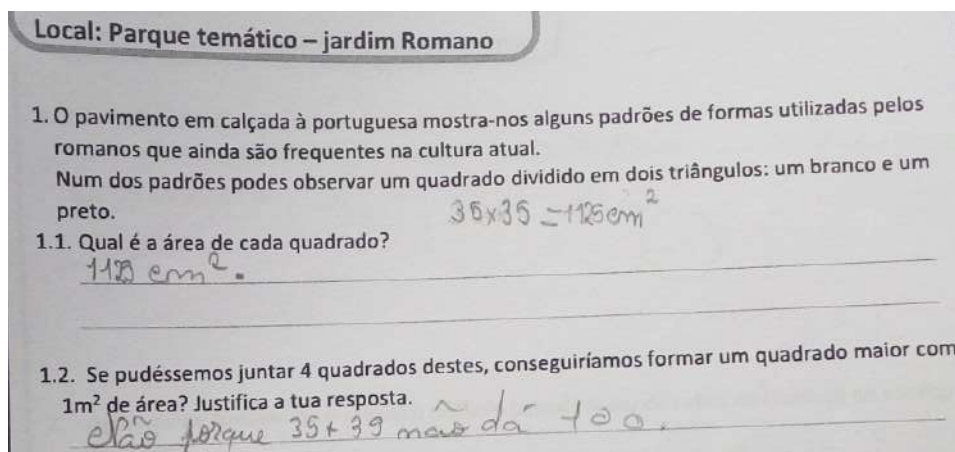 Local: Parque temático – jardim Romano
1. O pavimento em calçada à portuguesa mostra-nos alguns padrões de formas utilizadas pelos
romanos que ainda são frequentes na cultura atual.
Num dos padrões podes observar um quadrado dividido em dois triângulos: um branco e um
preto.
35x35 = 1125 cm²
1.1. Qual é a área de cada quadrado?
1125 cm².
1.2. Se pudéssemos juntar 4 quadrados destes, conseguiríamos formar um quadrado maior com
1m² de área? Justifica a tua resposta.
Não porque 35+39 não dá 100.